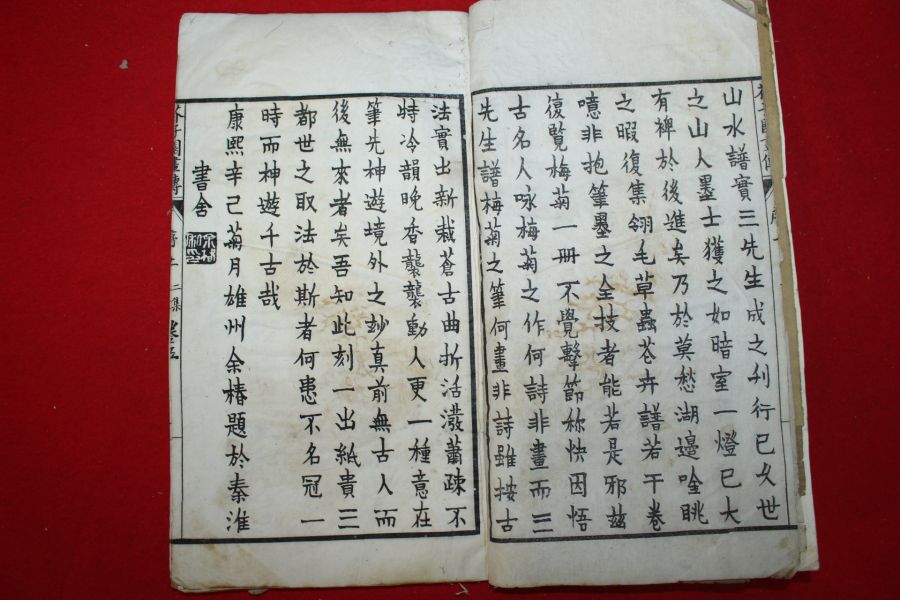 山水譜實三先生成之刋行已久世
之山人墨士獲之如暗室一燈已大
有裨於後進矣乃於莫愁湖邊唫眺
之暇復集翎毛草蟲花卉譜若干卷
噫非抱筆墨之全技者能若是邪兹
復覽梅菊一冊不覺擊節称快因悟
古名人咏梅菊之作何詩非畫而三
先生譜梅菊之筆何畫非詩雖按古
法實出新裁蒼古曲折活潑蕭疎不
特冷韻晚香襲襲動人更一種意在
筆先神遊境外之玅真前無古人而
後無來者矣吾知此刻一出紙貴三
都世之取法於斯者何患不名冠一
時而神遊千古哉
康熙辛己菊月雄州余椿題於秦淮
書舍
芥子園畫傳
二集